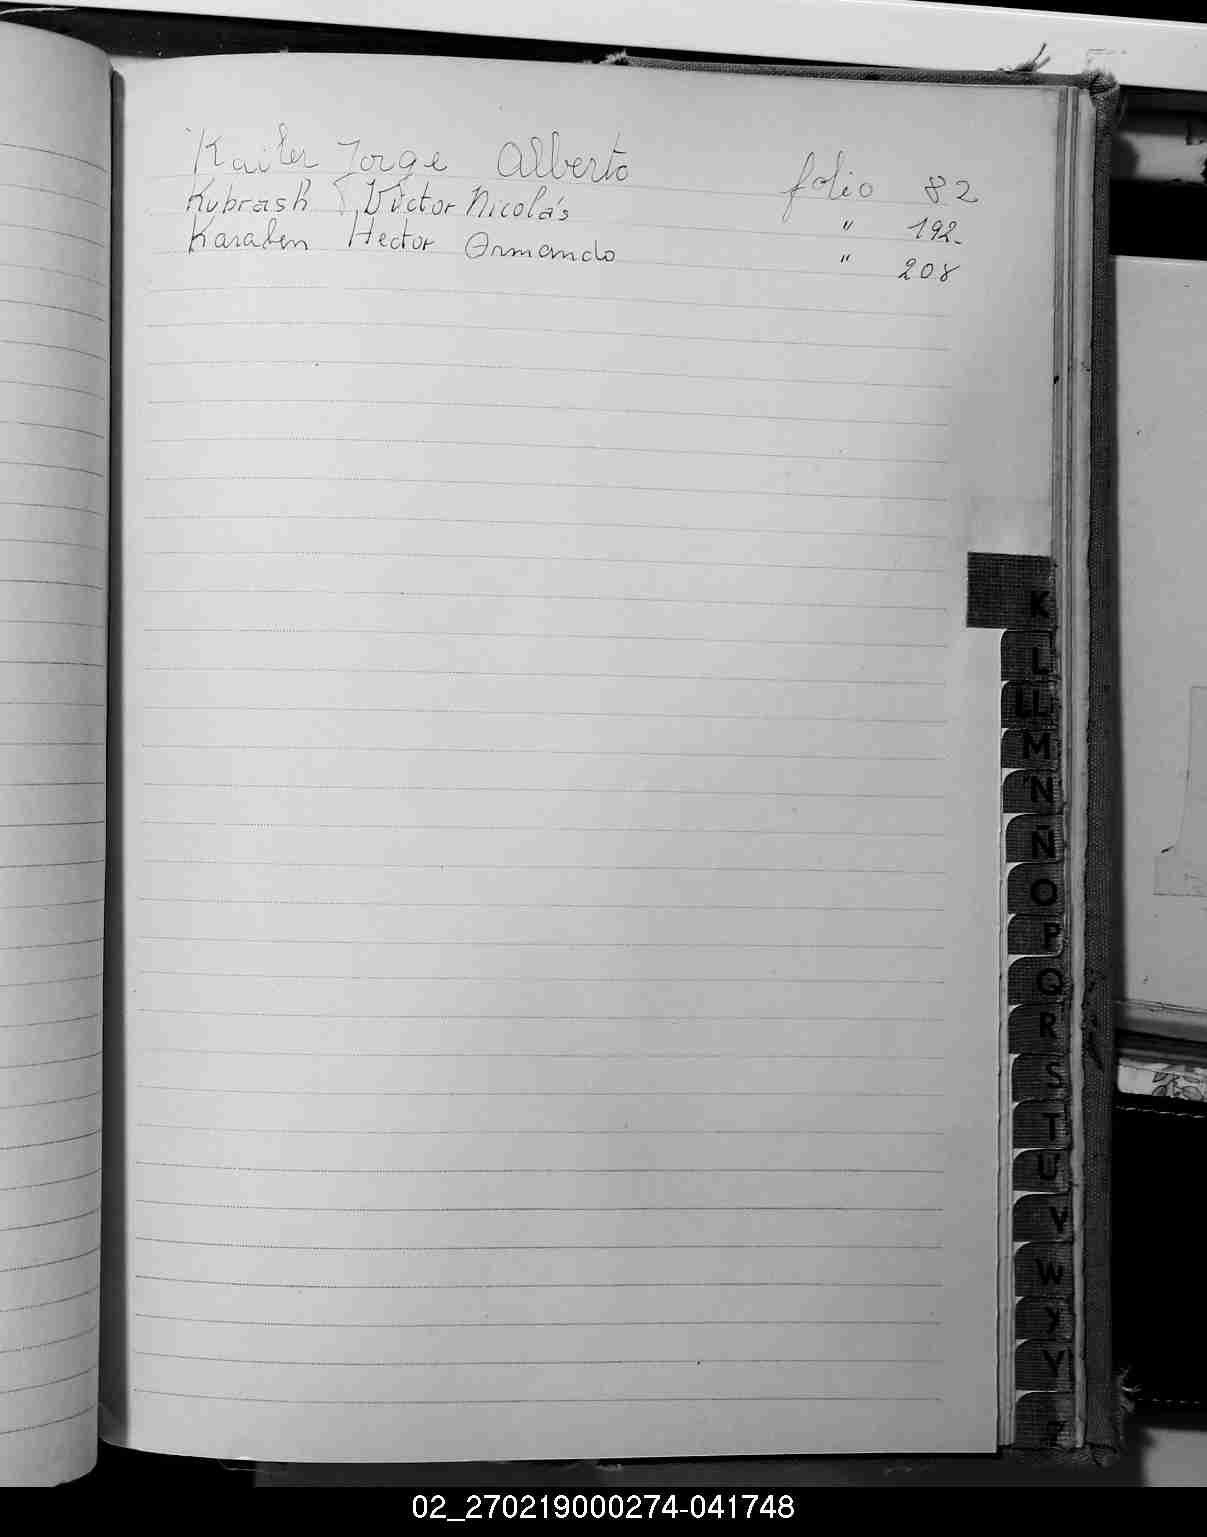 Kailer Jorge Alberto folio 82
Kubrash J. Víctor Nicolás " 192.
Karaben Hector Armando " 208
K
L
LL
M
N
Ñ
O
P
Q
R
S
T
U
V
W
Y
Z
02_270219000274-041748